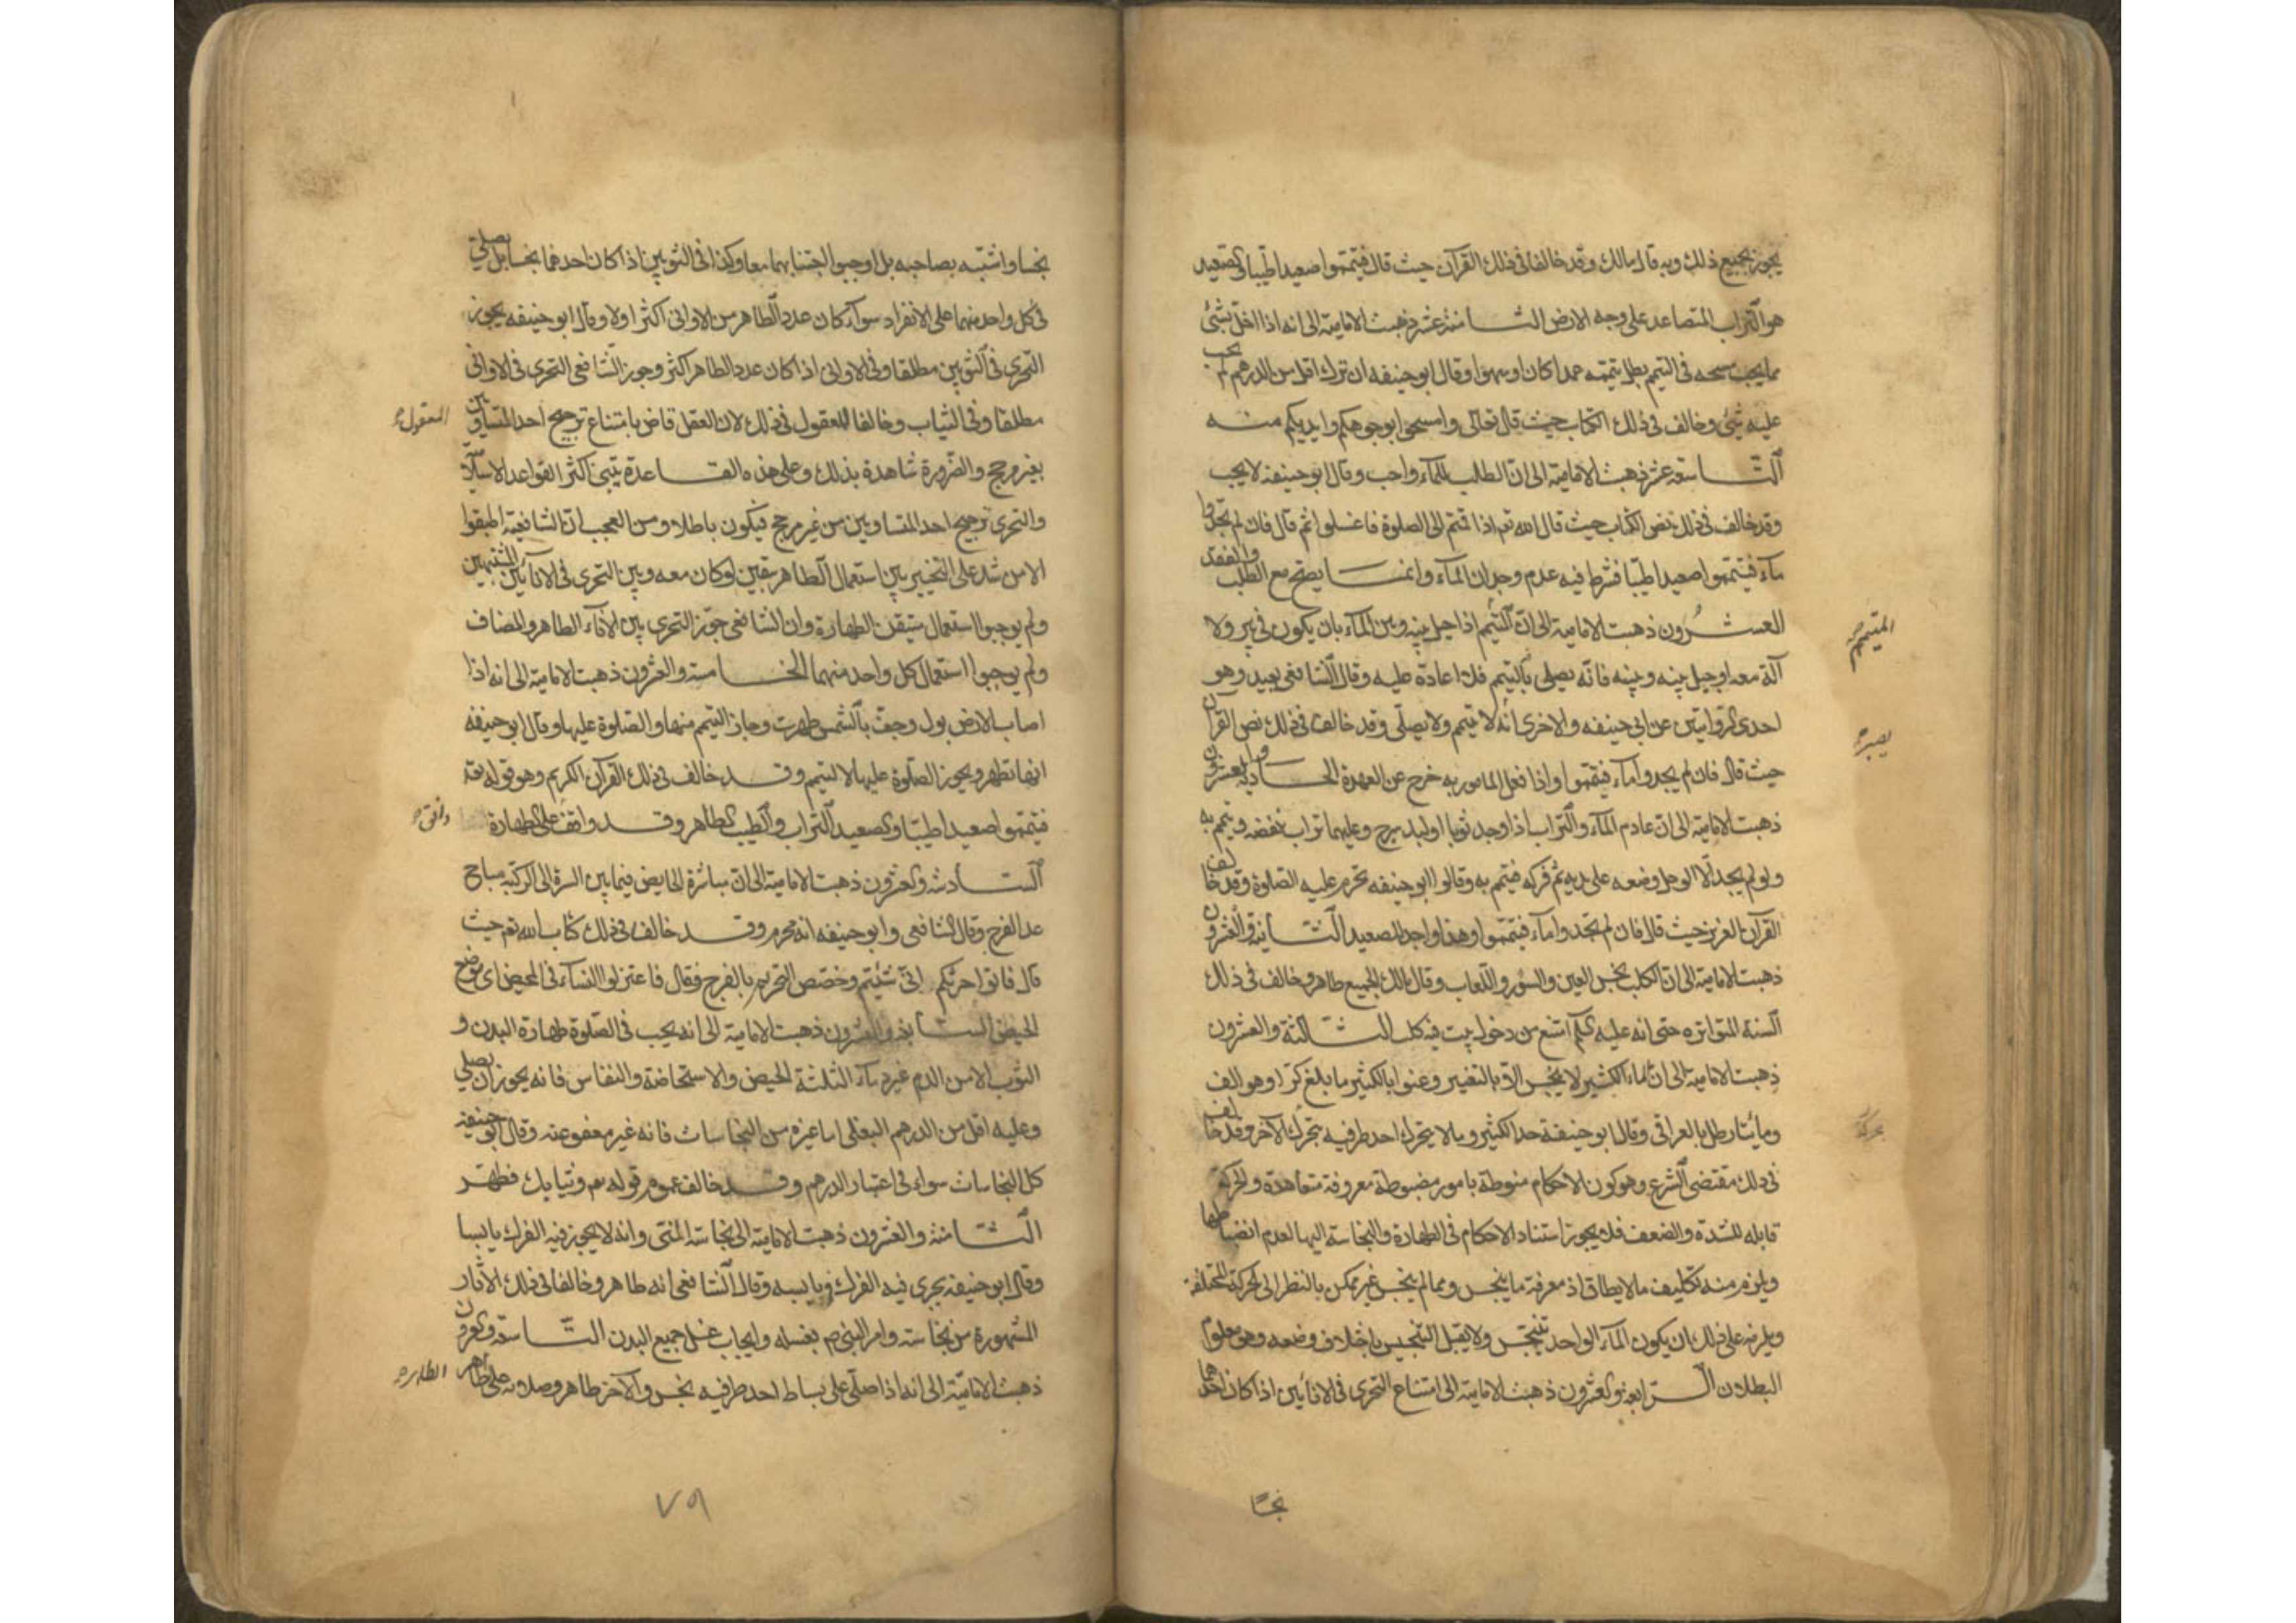 يجوز بجميع ذلك وبه قال مالك وقد خالفا في ذلك القرآن حيث قال فتيمموا صعيدا طيبا والصعيد
هو التراب المتصاعد على وجه الارض الثامنة عشر ذهبت الامامية الى انه اذا اخل بشئ
مما يجب مسحه في التيمم بطل تيممه عمدا كان او سهوا وقال ابو حنيفه ان ترك اقل من الدرهم لم يجب
عليه شئ وخالف في ذلك الكتاب حيث قال تعالى وامسحوا بوجوهكم وايديكم منه
التاسعة عشر ذهبت الامامية الى ان الطلب للماء واجب وقال ابو حنيفه لا يجب
وقد خالف في ذلك نص الكتاب حيث قال الله تعم اذا قمتم الى الصلوة فاغسلوا ثم قال فان لم تجدوا
ماء فتيمموا صعيدا طيبا فشرط فيه عدم وجدان الماء وانما يصح مع الطلب والفقد
العشرون ذهبت الامامية الى ان التيمم اذا حيل بينه وبين الماء بان يكون في بير ولا
المتيمم
آلة معه او حيل بينه وبينه فانه يصلي بالتيمم فلا اعادة عليه وقال الشافعي يعيد وهو
احدى الروايتين عن ابي حنيفه والاخرى انه لا يتيمم ولا يصلي وقد خالف في ذلك نص القرآن
يصبر
حيث قال فان لم يجدوا ماء فتيمموا واذا فعل المامور به خرج عن العهدة الحادية والعشرون
ذهبت الامامية الى ان عادم الماء والتراب اذا وجد ثوبا او لبد سرج وعليهما تراب نفضه وتيمم به
ولو لم يجد الا الوحل وضعه على يديه ثم فركه فيتيمم به وقالوا ابو حنيفه تحرم عليه الصلوة وقد خالف
القرآن العزيز حيث قال فان لم تجدوا ماء فتيمموا وهذا واجد للصعيد الثانية والعشرون
ذهبت الامامية الى ان الكلب نجس العين والسؤر واللعاب وقال مالك الجميع طاهر وخالف في ذلك
السنة المتواتره حتى انه عليه السلم امتنع من دخول بيت فيه كلب الثالثة والعشرون
ذهبت الامامية الى ان الماء الكثير لا ينجس الا بالتغيير وعنوا بالكثير ما بلغ كرا وهو الف
ومائتا رطل بالعراقي وقال ابو حنيفة حد الكثير وما لا يتحرك احد طرفيه بتحرك الآخر وقد خالف
بحركة
في ذلك مقتضى الشرع وهو كون الاحكام منوطة بامور مضبوطة معروفة متعاهدة والحركة
قابله للشدة والضعف فلا يجوز استناد الاحكام في الطهارة والنجاسة اليها لعدم انضباطها
ويلزم منه تكليف ما لا يطاق اذ معرفة ما ينجس ومما لم ينجس غير ممكن بالنظر الى الحركة المختلفة
ويلزمه على ذلك ان يكون الماء الواحد ينجس ولا يقبل التنجيس باختلاف وضعه وهو معلوم
البطلان الرابعة والعشرون ذهبت الامامية الى امتناع التحري في الانائين اذا كان احدهما
نجسًا
نجسا واشتبه بصاحبه بل اوجبوا اجتنابهما معا وكذا في الثوبين اذا كان احدهما نجسا بل يصلي
في كل واحد منهما على الانفراد سواء كان عدد الطاهر من الاواني اكثر او لا وقال ابو حنيفه يجوز
التحري في الثوبين مطلقا وفي الاواني اذا كان عدد الطاهر اكثر وجوز الشافعي التحري في الاواني
مطلقا وفي الثياب وخالفا للعقول في ذلك لان العقل قاض بامتناع ترجيح احد المتساويين
المعقول
بغير مرجح والضرورة شاهدة بذلك وعلى هذه القاعدة يبتني اكثر القواعد الاسلام
والتحري ترجيح احد المتساويين من غير مرجح فيكون باطلا ومن العجب ان الشافعية اطبقوا
الا من شذ على التخيير بين استعمال الطاهر بيقين لو كان معه وبين التحري في الانائين المشتبهين
ولم يوجبوا استعمال متيقن الطهارة وان الشافعي جوز التحري بين الاناء الطاهر والمضاف
ولم يوجبوا استعمال كل واحد منهما الخامسة والعشرون ذهبت الامامية الى انه اذا
اصاب الارض بول وجف بالشمس طهرت وجاز التيمم منها والصلوة عليها وقال ابو حنيفه
انها تطهر ويجوز الصلوة عليها لا التيمم وقد خالف في ذلك القرآن الكريم وهو قوله تعه
فتيمموا صعيدا طيبا والصعيد التراب والطيب الطاهر وقد وافق على الطهارة
وافق
السادسة والعشرون ذهبت الامامية الى ان مباشرة الحايض فيما بين السرة الى الركبة مباح
عدا الفرج وقال الشافعي وابو حنيفه انه محرم وقد خالف في ذلك كتاب الله تعم حيث
قال فاتوا حرثكم انى شئتم وخصص التحريم بالفرج فقال فاعتزلوا النساء في المحيض اى موضع
الحيض السابعة والعشرون ذهبت الامامية الى انه يجب في الصلوة طهارة البدن و
الثوب الا من الدم غير دماء الثلثة الحيض والاستحاضة والنفاس فانه يجوز ان يصلي
وعليه اقل من الدرهم البغلي اما غيره من النجاسات فانه غير معفو عنه وقال ابو حنيفه
كل النجاسات سواء في اعتبار الدرهم وقد خالف عموم قوله تعم وثيابك فطهر
الثامنة والعشرون ذهبت الامامية الى نجاسة المني وانه لا يجوز فيه الفرك يابسا
وقال ابو حنيفه يجزى فيه الفرك ويابسه وقال الشافعي انه طاهر وخالفا في ذلك الآثار
المشهورة من نجاسته وامر النبي ص بغسله وايجاب غسل جميع البدن التاسعة والعشرون
ذهبت الامامية الى انه اذا صلى على بساط احد طرفيه نجس والآخر طاهر وصلاته على طاهر
الطاهر
٧٩